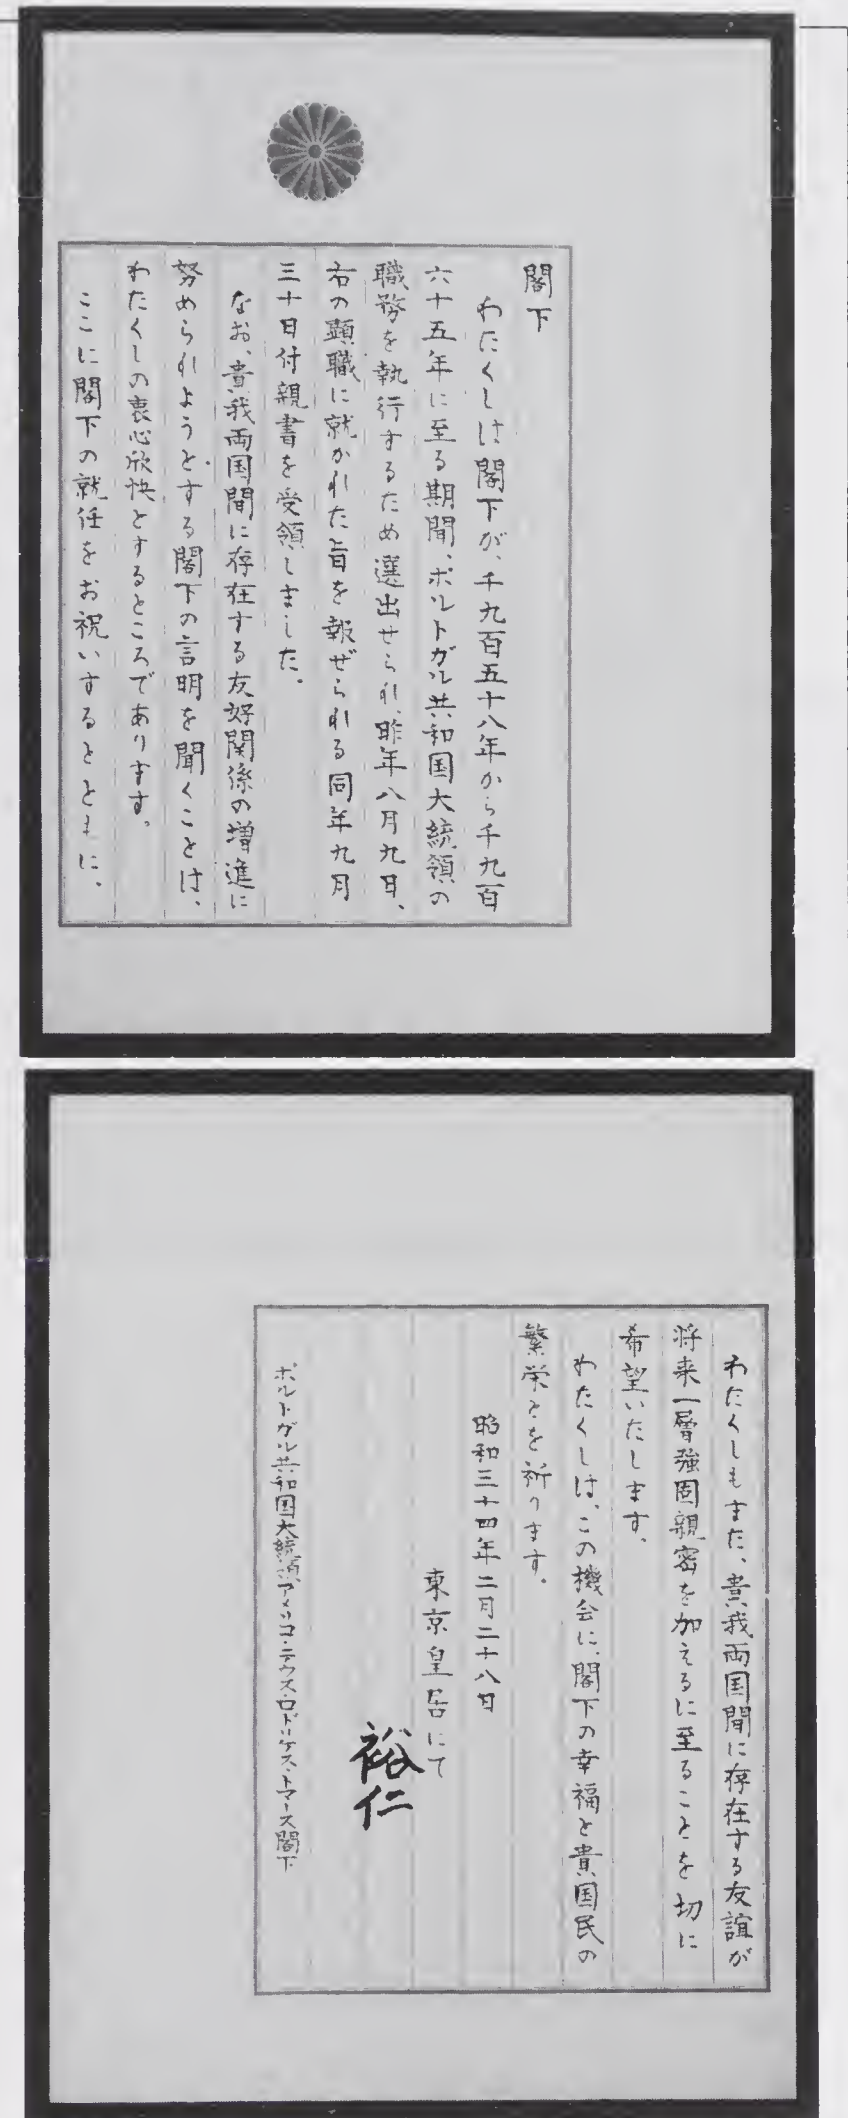 閣下
わたくしは閣下が、千九百五十八年から千九百
六十五年に至る期間、ポルトガル共和国大統領の
職務を執行するため選出せられ、昨年八月九日、
右の顕職に就かれた旨を報ぜられる同年九月
三十日付親書を受領しました。
なお、貴我両国間に存在する友好関係の増進に
努められようとする閣下の言明を聞くことは、
わたくしの衷心欣快とするところであります。
ここに閣下の就任をお祝いするとともに、
わたくしもまた、貴我両国間に存在する友誼が
将来一層強固親密を加えるに至ることを切に
希望いたします。
わたくしは、この機会に、閣下の幸福と貴国民の
繁栄とを祈ります。
昭和三十四年二月二十八日
東京皇居にて
裕仁
ポルトガル共和国大統領アメリコ・デウス・ロドリゲス・トマース閣下